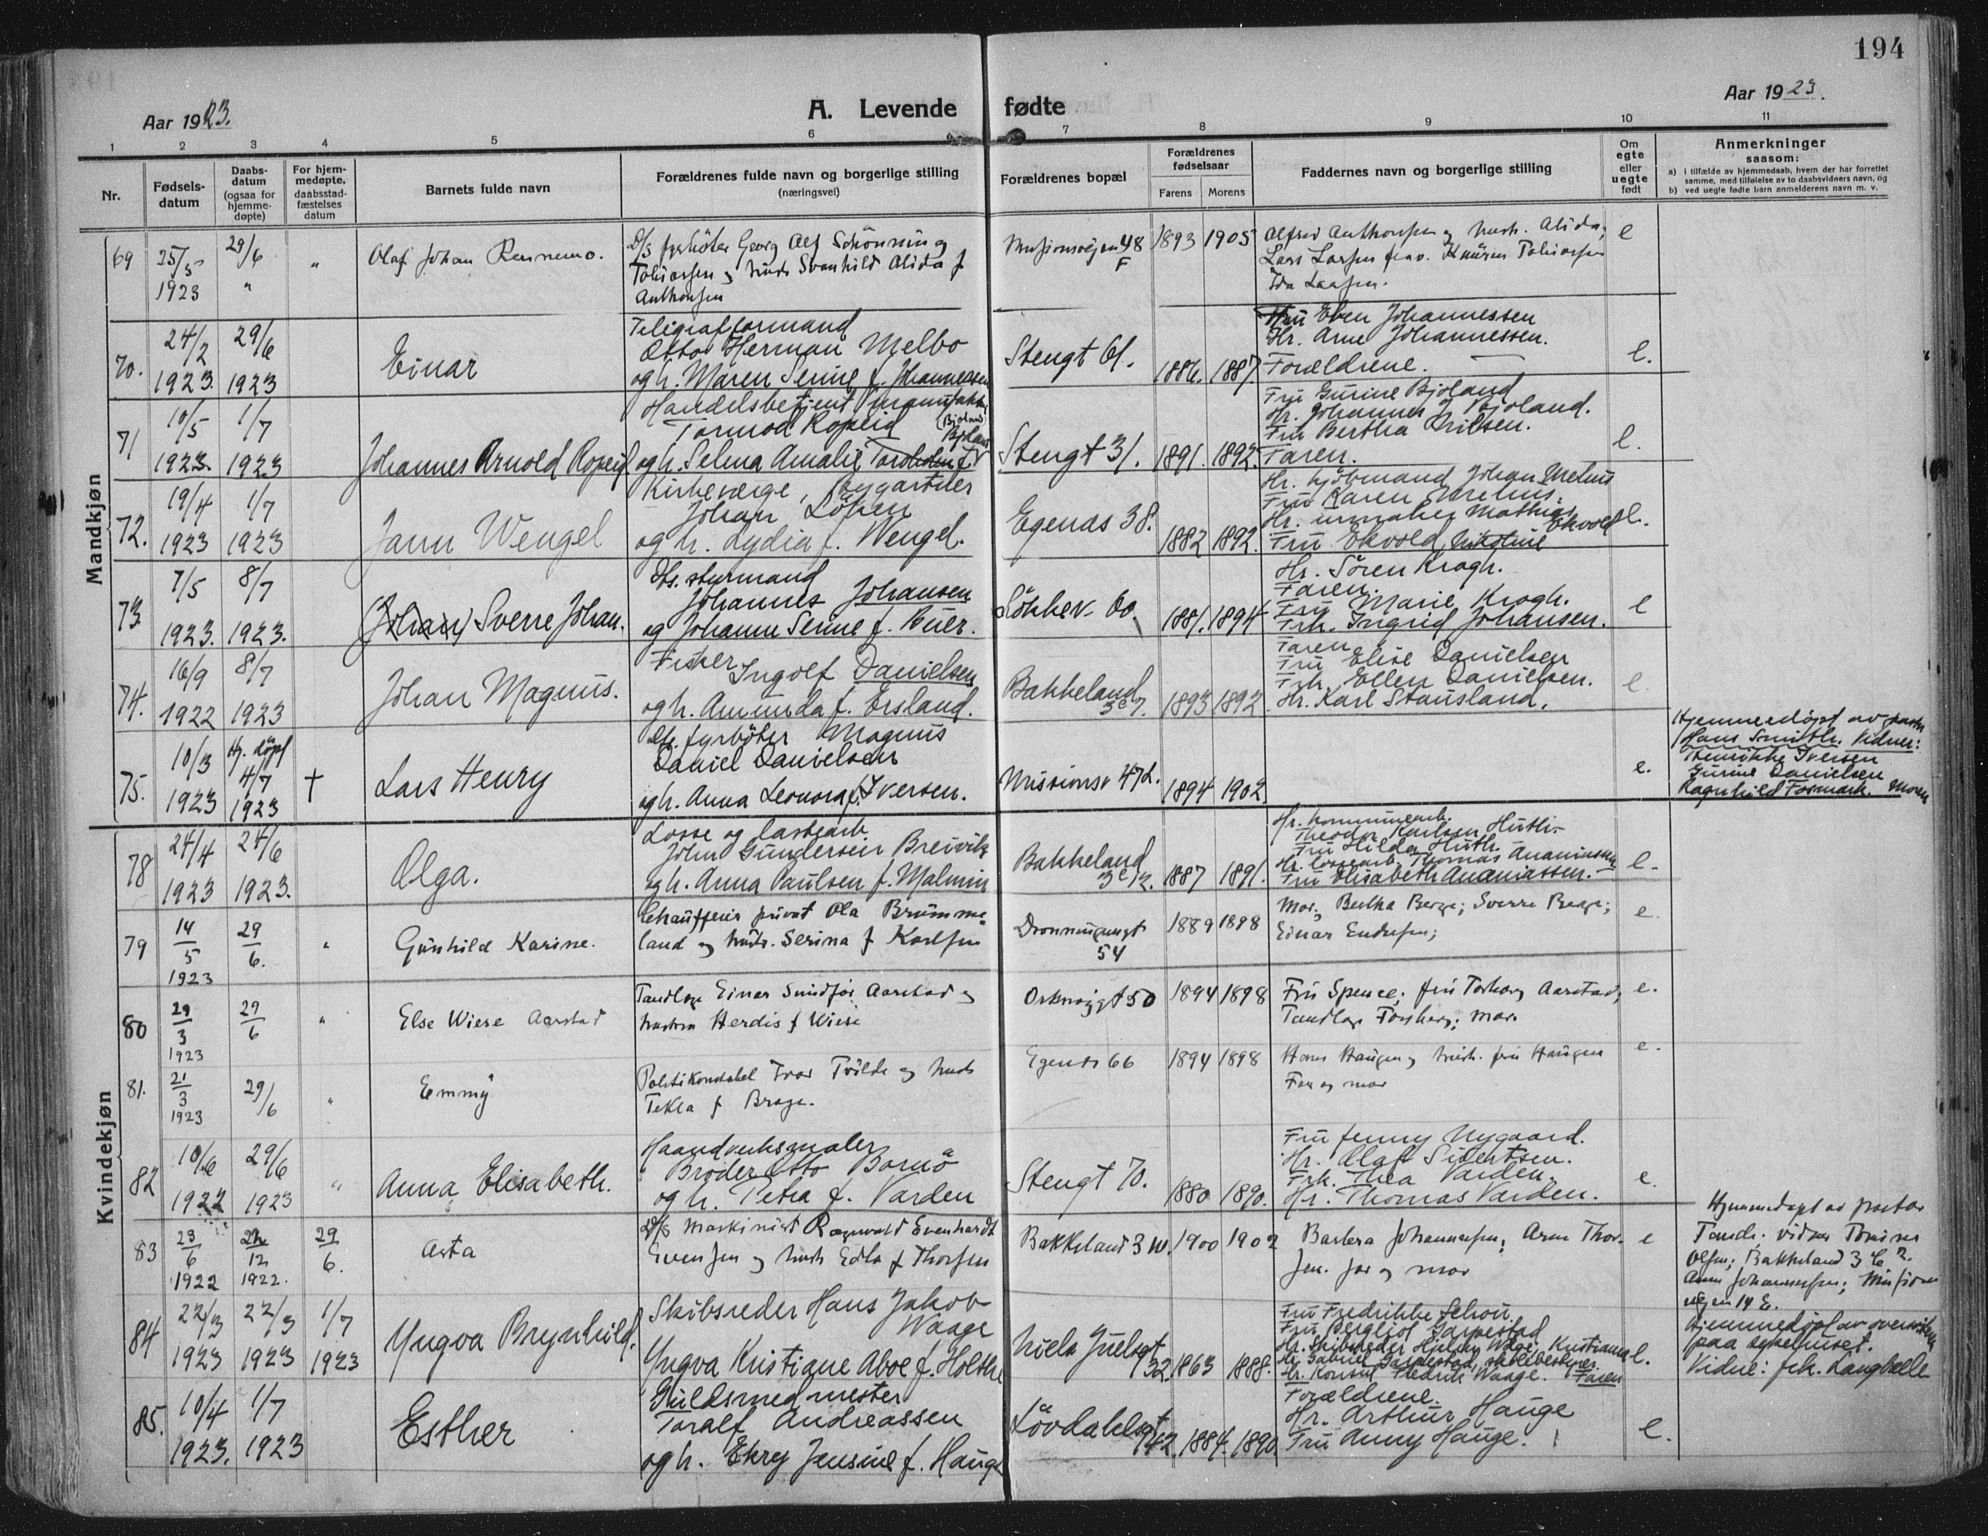 194
Aar 1923.
A. Levende fødte
Aar 1923.
1 2 3 4 5 6 7 8 9 10 11
Nr.
Fødsels-
datum
Daabs-
datum
(ogsaa for
hjemme-
døpte)
For hjem-
medøpte,
daabsstad-
fæstelses
datum
Barnets fulde navn
Forældrenes fulde navn og borgerlige stilling
(næringsvei)
Forældrenes bopæl
Forældrenes
fødselsaar
Farens Morens
Faddernes navn og borgerlige stilling
Om
egte
eller
uegte
født
Anmerkninger
saasom:
a) I tilfælde av hjemmedaab, hvem der har forrettet
samme, med tilføielse av to daabsvidners navn, og
b) ved uegte fødte barn anmelderens navn m. v.
Mandkjøn
69 25/5 1923 29/6 " Olaf Johan Rennemo.
D/s fyrbøter Georg Alf Schönning
Tobiassen og hust. Svanhild Alida f
Anthonsen
48 F 1893 1905
Alfred Anthonsen og hust. Alida;
Lars Larsen
Ida Larsen.
e
70. 24/2 1923. 29/6 1923 Einar
Telegrafformand
Otto Herman Melbo
og h. Maren Serine f. Johannessen
Stengt 61. 1886. 1887.
Fru Eben Johannessen
Hr. Arne Johannessen.
Forældrene.
e.
71 10/5 1923. 1/7 1923 Johannes Arnold Ropeid
Handelsbetjent
Tormod Ropeid
og h. Selma Amalie
Stengt 31. 1891. 1892.
Fru Gurine Bjoland
Hr. Johannes J. Bjoland.
Fru Bertha Nilsen.
Faren.
e.
72. 19/4 1923 1/7 1923 Jann Wengel
Kirkeverge, bygartner
Johan Löken
og h. Lydia f. Wengel.
Egenas 38. 1882 1892.
Johan Melhus
Fru Karen Melhus.
Hr. urmaker Mathias Ekvold
Fru Ekvold, Nikoline
e.
73. 7/5 1923. 8/7 1923. (Johan) Sverre Johan.
Dts. styrmand
Johannes Johansen
og Johanne Serine f. Buer.
Lökkev. 60. 1881. 1894
Hr. Sören Krogh.
Faren.
Fru Marie Krogh.
Frk. Ingrid Johansen.
e
74. 16/9 1922 8/7 1923 Johan Magnus.
Fisker Ingolf Danielsen
og h. Amunda f. Ersland.
Bakkeland 1893 1892
Faren
Fru Elise Danielsen
Frk. Ellen Danielsen.
Hr. Karl Stausland.
e.
75. 10/3 1923 Hj. döpt 4/7 1923 † Lars Henry
Dts. fyrböter Magnus
Daniel Danielsen
og h. Anna Leonora f. Iversen.
Missionsv 47 1894 1902.
e.
Hjemmedöpt av
Hans Smith. Vidner:
Henrikke Iversen
Gurine Danielsen
Ragnhild Formark. Moren
Kvindekjøn
78 24/4 1923 24/6 1923. Olga.
Losse og lastearb.
John Gundersen Breivik
og h. Anna Paulsen f. Malmin
Bakkeland 1887 1891.
Hr. kommunearb.
Theodor Karlsen Huth.
Fru Hilda Huth.
Hr. lossearb. Thomas Ananiassen
Fru Elisabeth Ananiassen.
e.
79 14/5 1923 29/6. " Gunhild Karine.
Chauffeur privat Ola Brumme-
land og hust. Serina f Karlsen
Dronningensgt 54 1889 1898
Mor; Bertha Berge; Sverre Berge;
Einar Endresen;
e.
80 29/3 1923 29/6 " Else Wiese Aarstad
Tandlæge Einar Aarstad og
hustru Herdis f Wiese
50 1894 1898
Fru Spence; fru Torborg Aarstad;
Tandlæge Forsberg; mor
e.
81. 21/3 1923 29/6 " Emmy
Politikonstabel Ivar Tvilde og hust
Tekla f Brage.
Egenes 66 1894 1898
Hans Haugen og hust. fru Haugen
Far og mor
e.
82 10/6 1922 29/6 1923 " Anna Elisabeth.
Haandverksmaler
Broder Otto Bornö
og h. Petra f. Varden
Stengt 70. 1880 1890.
Fru Jenny Nygaard.
Hr. Olaf Sivertsen.
Frk. Thea Varden.
Hr. Thomas Varden.
e.
83 23/6 1922 12 1922. 29/6. Asta
D/s Maskinist Ragnvald Evenhardt
Evensen og hust Edla f Thorsen
Bakkeland 3 1900 1902
Barbera Johannesen; Arne Thor-
sen. far og mor
e
Hjemmedøpt av prost
vidner
Olsen; Bakkeland 3
Anna Johannesen; Misjons
veien 14 E.
84 22/3 1923 22/3 1923 1/7 1923 Yngva Brynhild.
Skibsreder Hans Jakob
Waage
Yngva Kristiane Aboe f. Holthe
Niels Juelsgt 32. 1863 1888.
Fru Fredrikke Schou.
Fru Bergliot Garpestad
Hr. Skibsreder Hilday Waage, Kristiania
Hr. Gabriel Garpestad, skolebestyrer
Hr. Konsul Fredrik Waage. Faren
e.
Hjemmedöpt av
paa sykehuset.
Vidne: frk. Langhelle
85. 10/4 1923. 1/7 1923 Esther
Guldsmedmester
Toralf Andreassen
og h. Jensine f. Hauge
Lövdahlsgt 42. 1884. 1890
Forældrene.
Hr. Arthur Hauge
Fru Anny Hauge.
e.